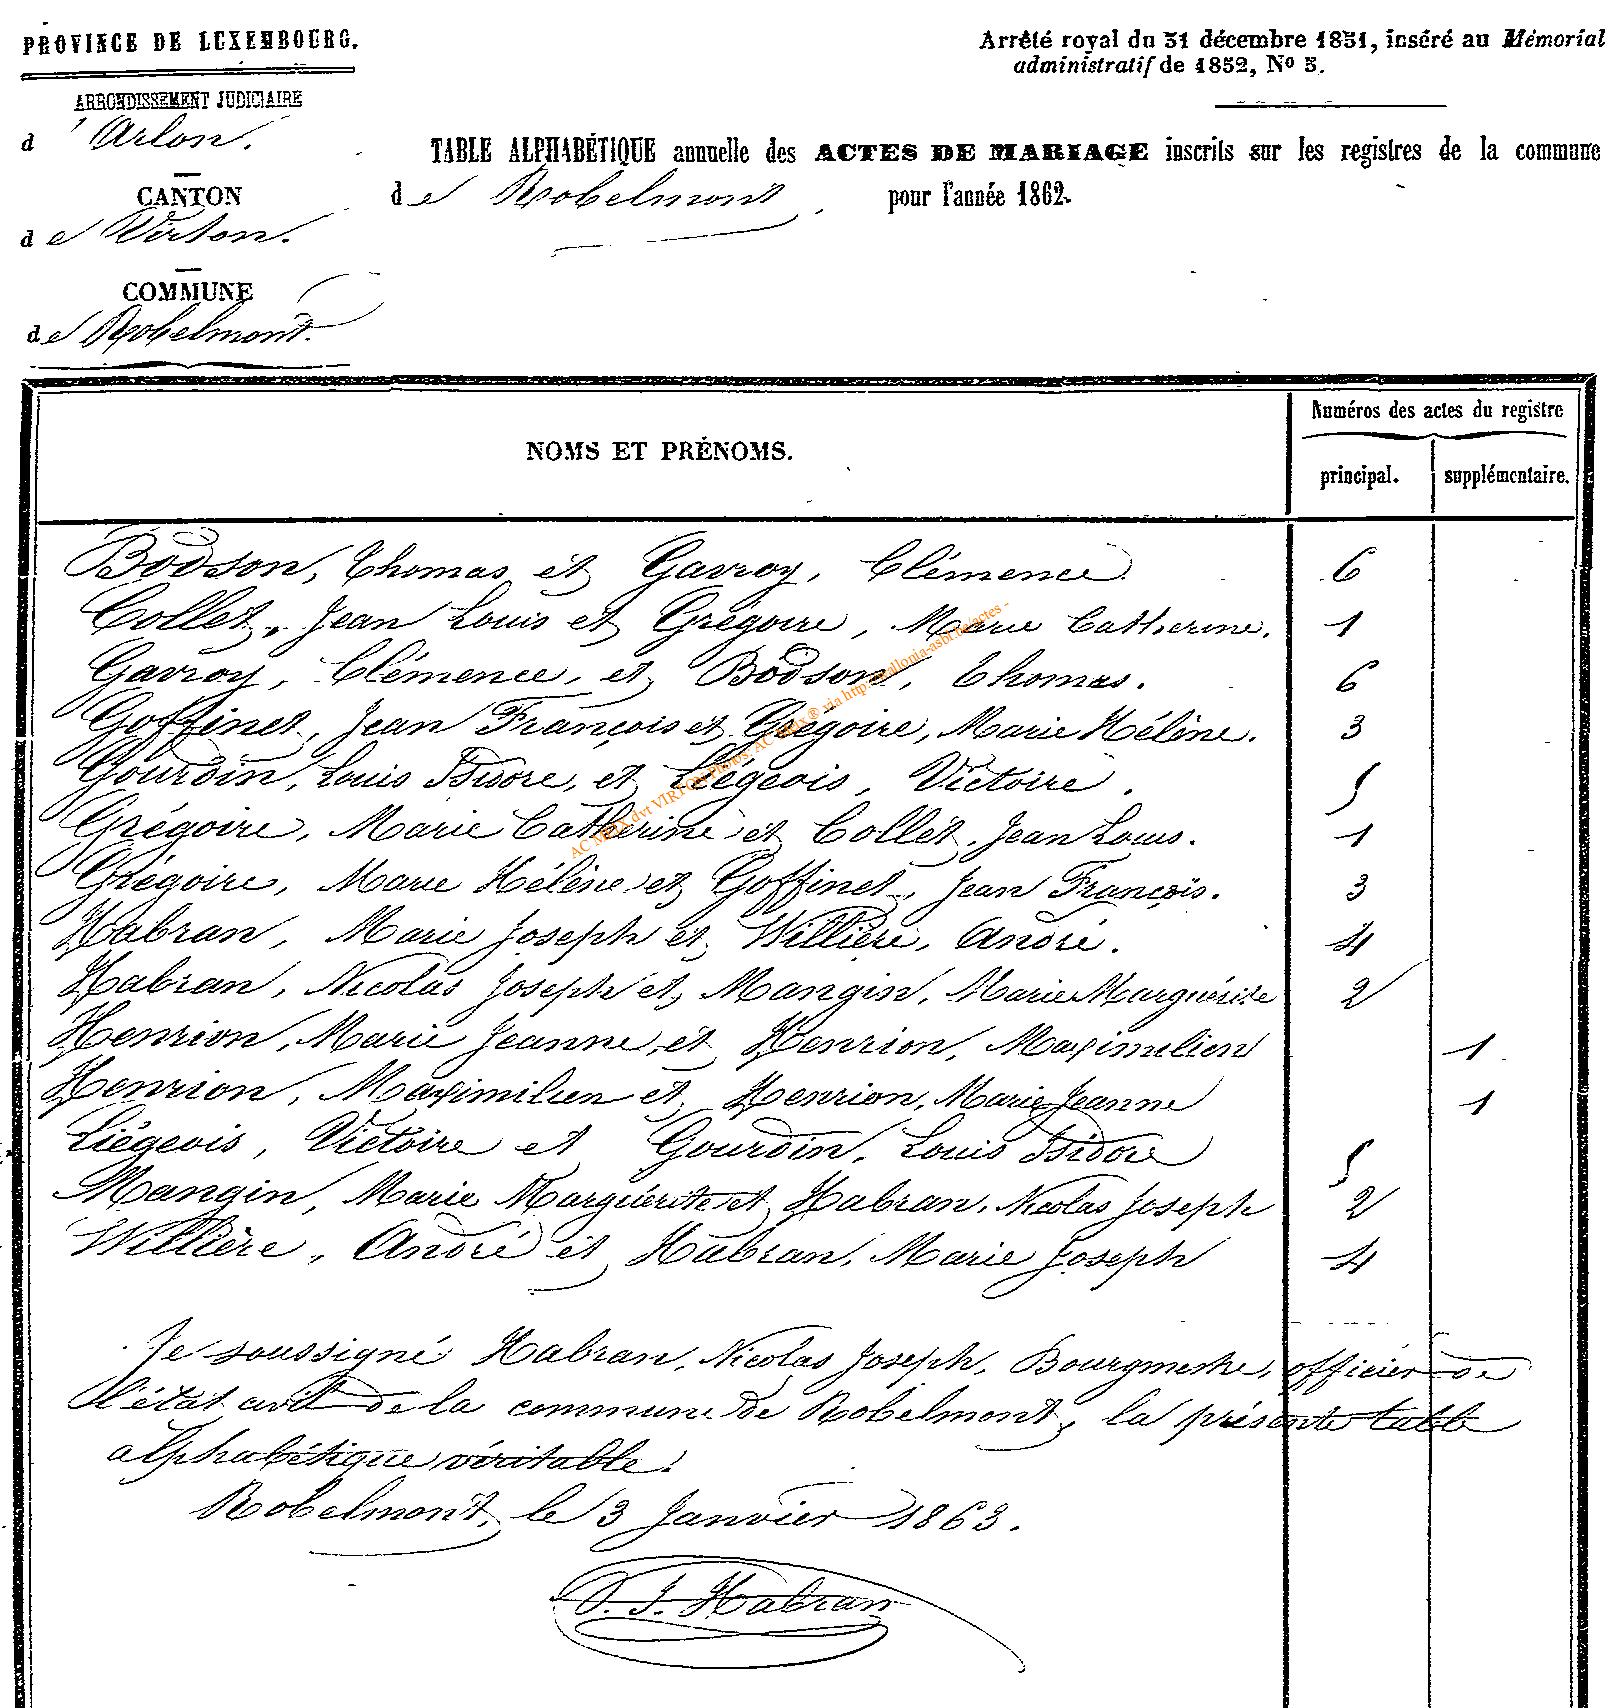 PROVINCE DE LUXEMBOURG.
ARRONDISSEMENT JUDICIAIRE
d'Arlon.
CANTON
de Virton.
COMMUNE
de Robelmont.
Arrêté royal du 31 décembre 1831, inséré au Mémorial
administratif de 1832, No 3.
TABLE ALPHABÉTIQUE annuelle des ACTES DE MARIAGE inscrits sur les registres de la commune
de Robelmont, pour l'année 1862.
NOMS ET PRÉNOMS.
Numéros des actes du registre
principal. supplémentaire.
Bodson, Thomas et Gavroy, Clémence 6
Collet, Jean Louis et Grégoire, Marie Catherine. 1
Gavroy, Clémence, et Bodson, Thomas. 6
Goffinet, Jean François et Grégoire, Marie Hélène. 3
Gourdin, Louis Isidore, et Liégeois, Victoire. 5
Grégoire, Marie Catherine et Collet, Jean Louis. 1
Grégoire, Marie Hélène et Goffinet, Jean François. 3
Habran, Marie Joseph et Willière, André. 4
Habran, Nicolas Joseph et Mangin, Marie Marguérite 2
Henrion, Marie Jeanne, et Henrion, Maximilien 1
Henrion, Maximilien et Henrion, Marie Jeanne 1
Liégeois, Victoire et Gourdin, Louis Isidore 5
Mangin, Marie Marguérite et Habran, Nicolas Joseph 2
Willière, André et Habran, Marie Joseph 4
Je soussigné Habran, Nicolas Joseph, Bourgmestre, officier de
l'état civil de la commune de Robelmont, la présente table
alphabétique véritable.
Robelmont, le 3 Janvier 1863.
Habran